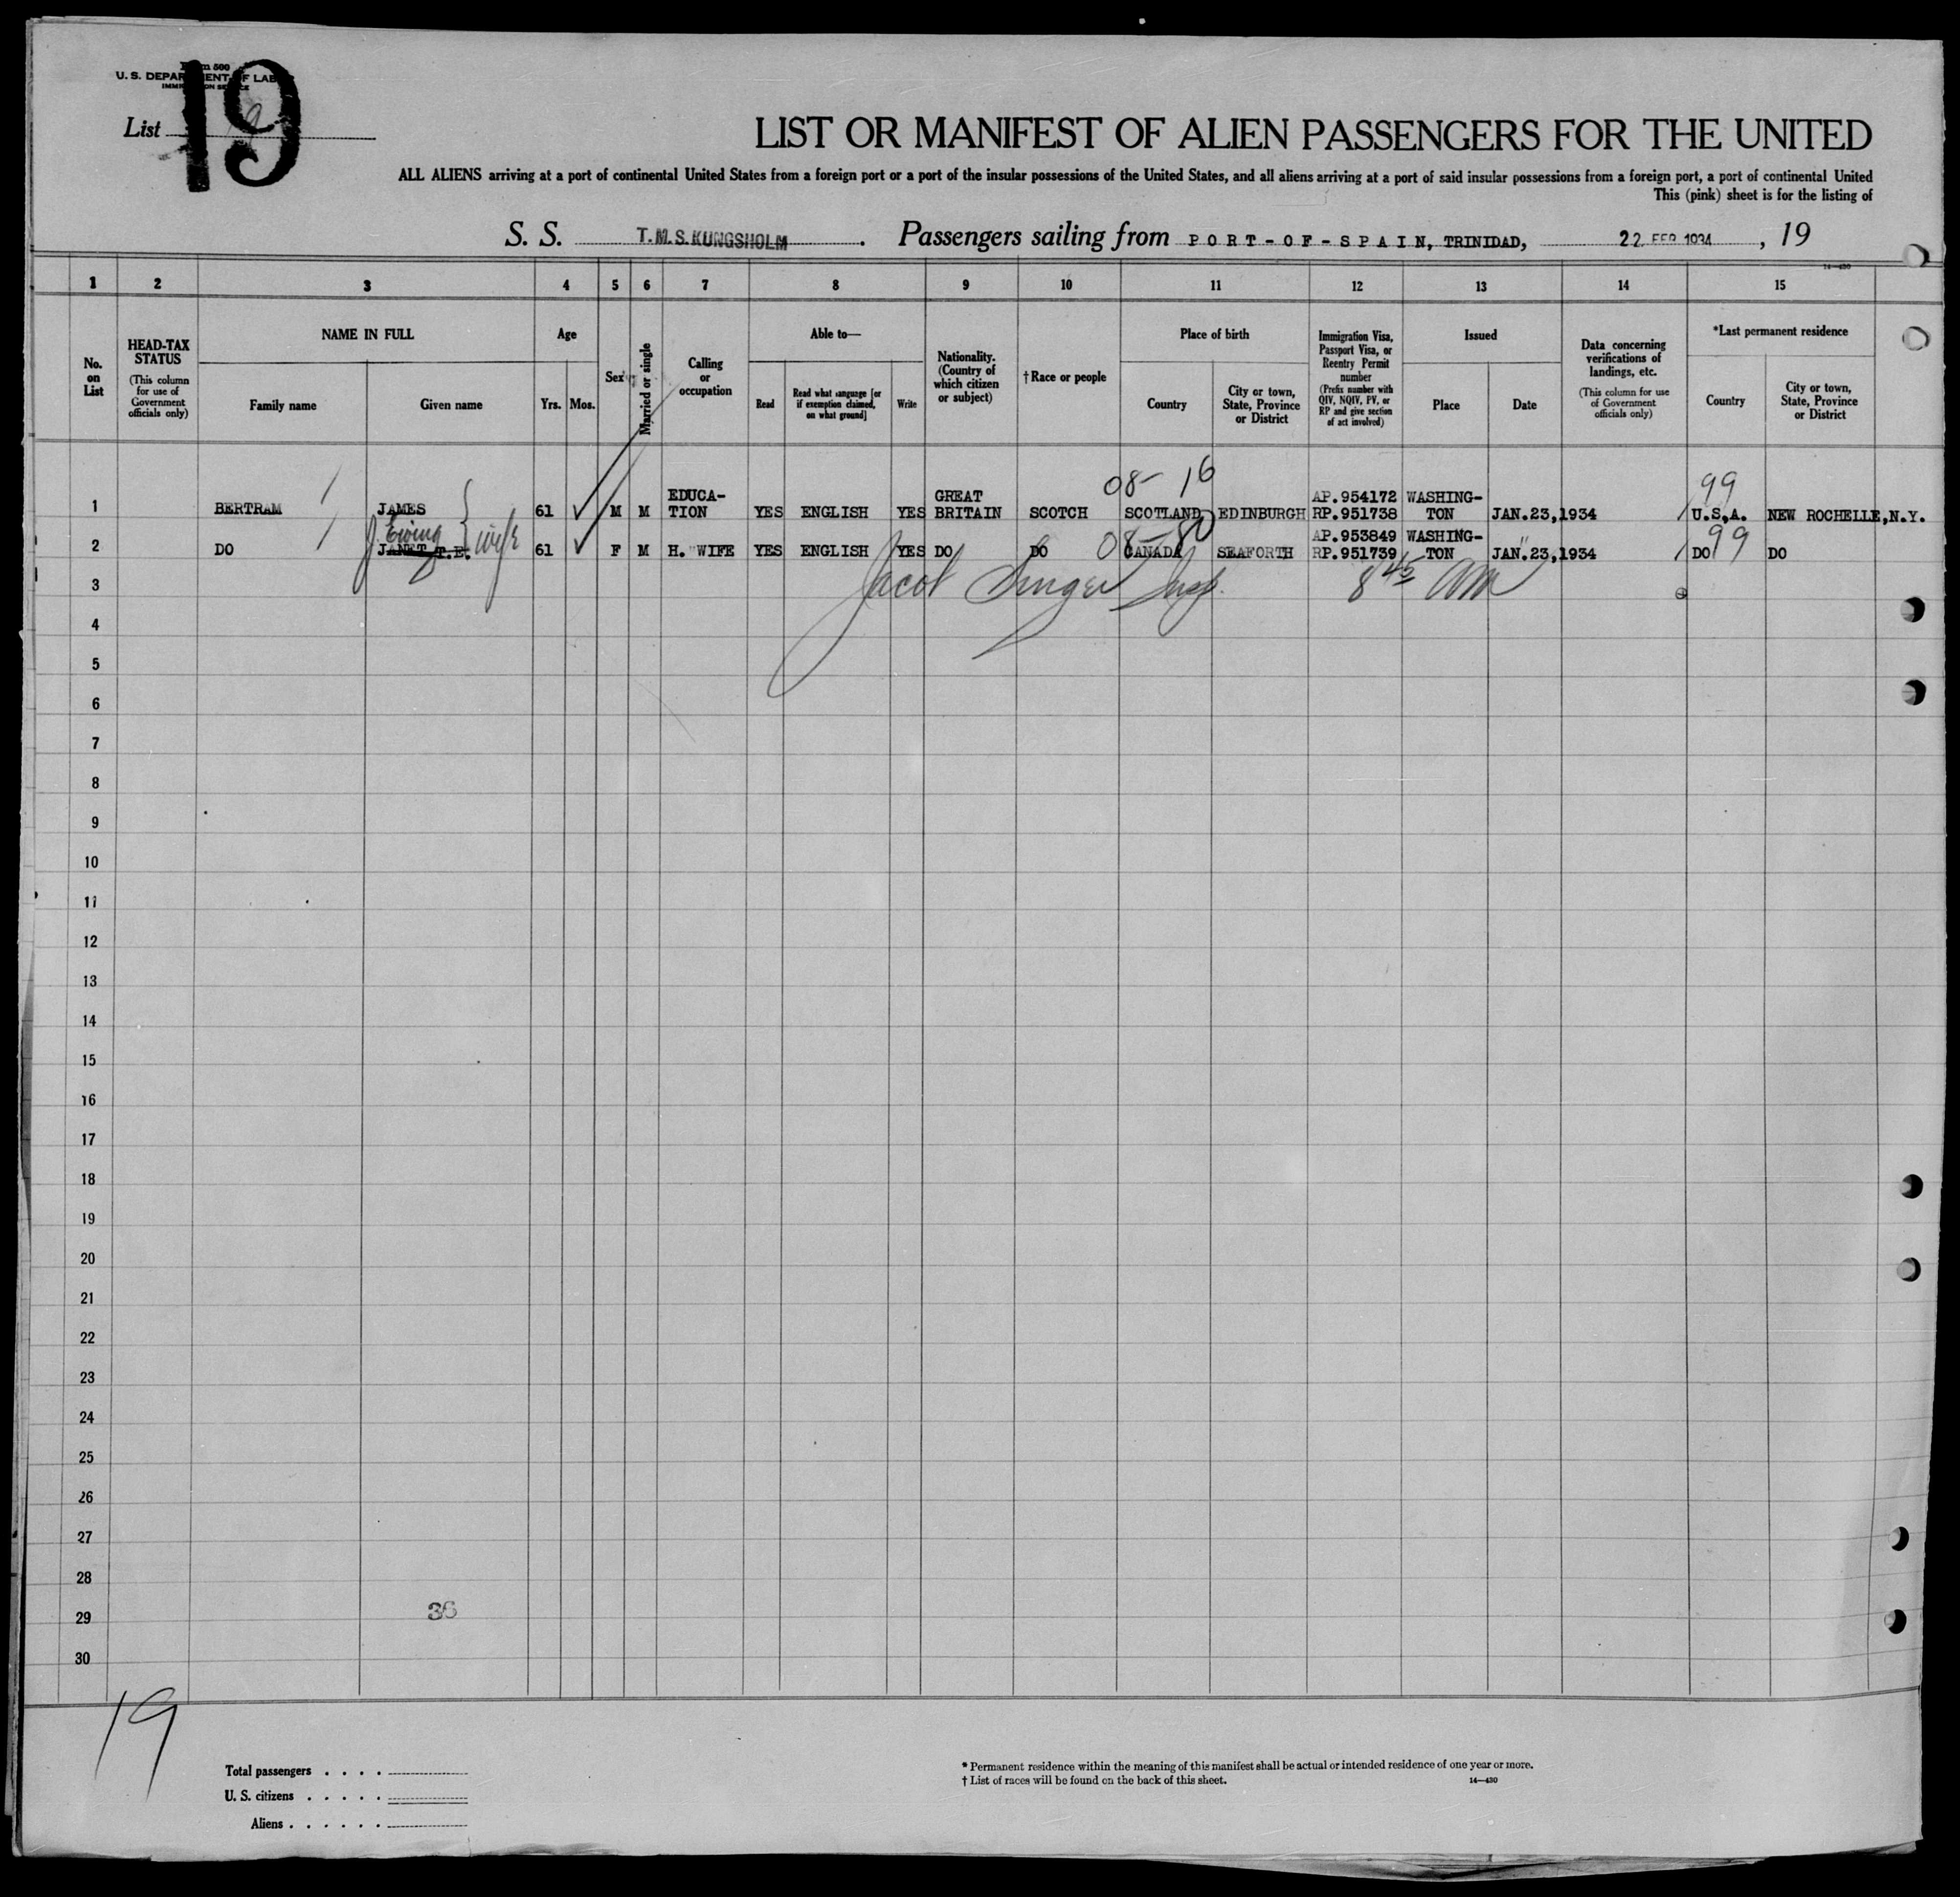 Form 500
U. S. DEPARTMENT OF LABOR
IMMIGRATION SERVICE
List 19
19
LIST OR MANIFEST OF ALIEN PASSENGERS FOR THE UNITED
ALL ALIENS arriving at a port of continental United States from a foreign port or a port of the insular possessions of the United States, and all aliens arriving at a port of said insular possessions from a foreign port, a port of continental United
This (pink) sheet is for the listing of
S. S. T.M.S.KUNGSHOLM . Passengers sailing from PORT-OF-SPAIN, TRINIDAD, 22 FEB 1934 , 19
14—430
1 2 3 4 5 6 7 8 9 10 11 12 13 14 15
No. on List
HEAD-TAX STATUS (This column for use of Government officials only)
NAME IN FULL
Family name
Given name
Age
Yrs. Mos.
Sex
Married or single
Calling or occupation
Able to—
Read
Read what language [or if exemption claimed, on what ground]
Write
Nationality. (Country of which citizen or subject)
†Race or people
Place of birth
Country
City or town, State, Province or District
Immigration Visa, Passport Visa, or Reentry Permit number (Prefix number with QIV, NQIV, PV, or RP and give section of act involved)
Issued
Place
Date
Data concerning verifications of landings, etc. (This column for use of Government officials only)
*Last permanent residence
Country
City or town, State, Province or District
08- 16 99
EDUCA- GREAT AP.954172 WASHING-
1 BERTRAM JAMES 61 M M TION YES ENGLISH YES BRITAIN SCOTCH SCOTLAND EDINBURGH RP.951738 TON JAN.23,1934 U.S.A. NEW ROCHELLE,N.Y.
J. Ewing wife 08-80 99
AP.953849 WASHING-
2 DO JANET T.E. 61 F M H. WIFE YES ENGLISH YES DO DO CANADA SEAFORTH RP.951739 TON JAN.23,1934 DO DO
3 Jacob Singer Insp. 8 45 am
4
5
6
7
8
9
10
11
12
13
14
15
16
17
18
19
20
21
22
23
24
25
26
27
28
29 36
30
19
Total passengers . . . .
U. S. citizens . . . . .
Aliens . . . . . .
* Permanent residence within the meaning of this manifest shall be actual or intended residence of one year or more.
† List of races will be found on the back of this sheet. 14—430